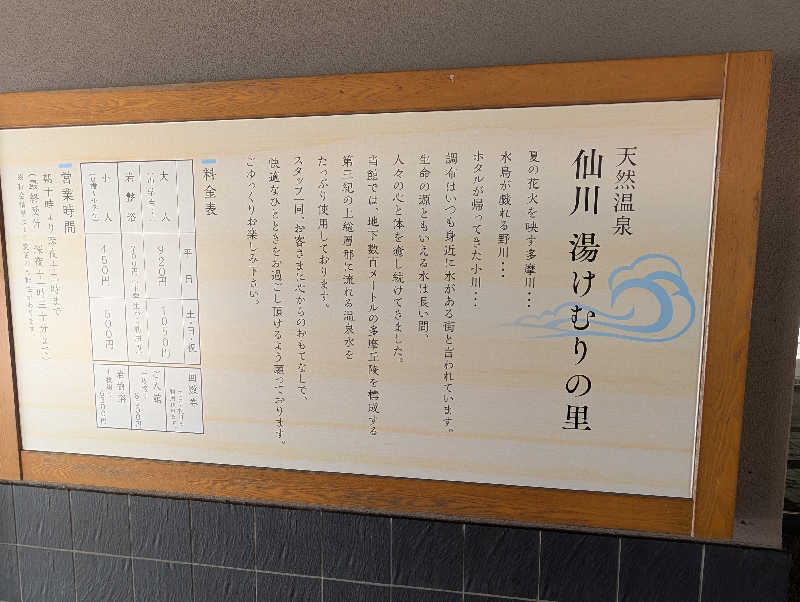 天然温泉
仙川 湯けむりの里
夏の花火を映す多摩川…
水鳥が戯れる野川…
ホタルが帰ってきた小川…
調布はいつも身近に水がある街と言われています。
生命の源ともいえる水は長い間、
人々の心と体を癒し続けてきました。
当館では、地下数百メートルの多摩丘陵を構成する
第三紀の上総層群に流れる温泉水を
たっぷり使用しております。
スタッフ一同、お客さまに心からのおもてなしで、
快適なひとときをお過ごし頂けるよう願っております。
ごゆっくりお楽しみ下さい。
料金表
平日
土・日・祝
回数券
大人
920円
1050円
岩盤浴
小人
450円
500円
営業時間
朝十時より深夜十二時まで